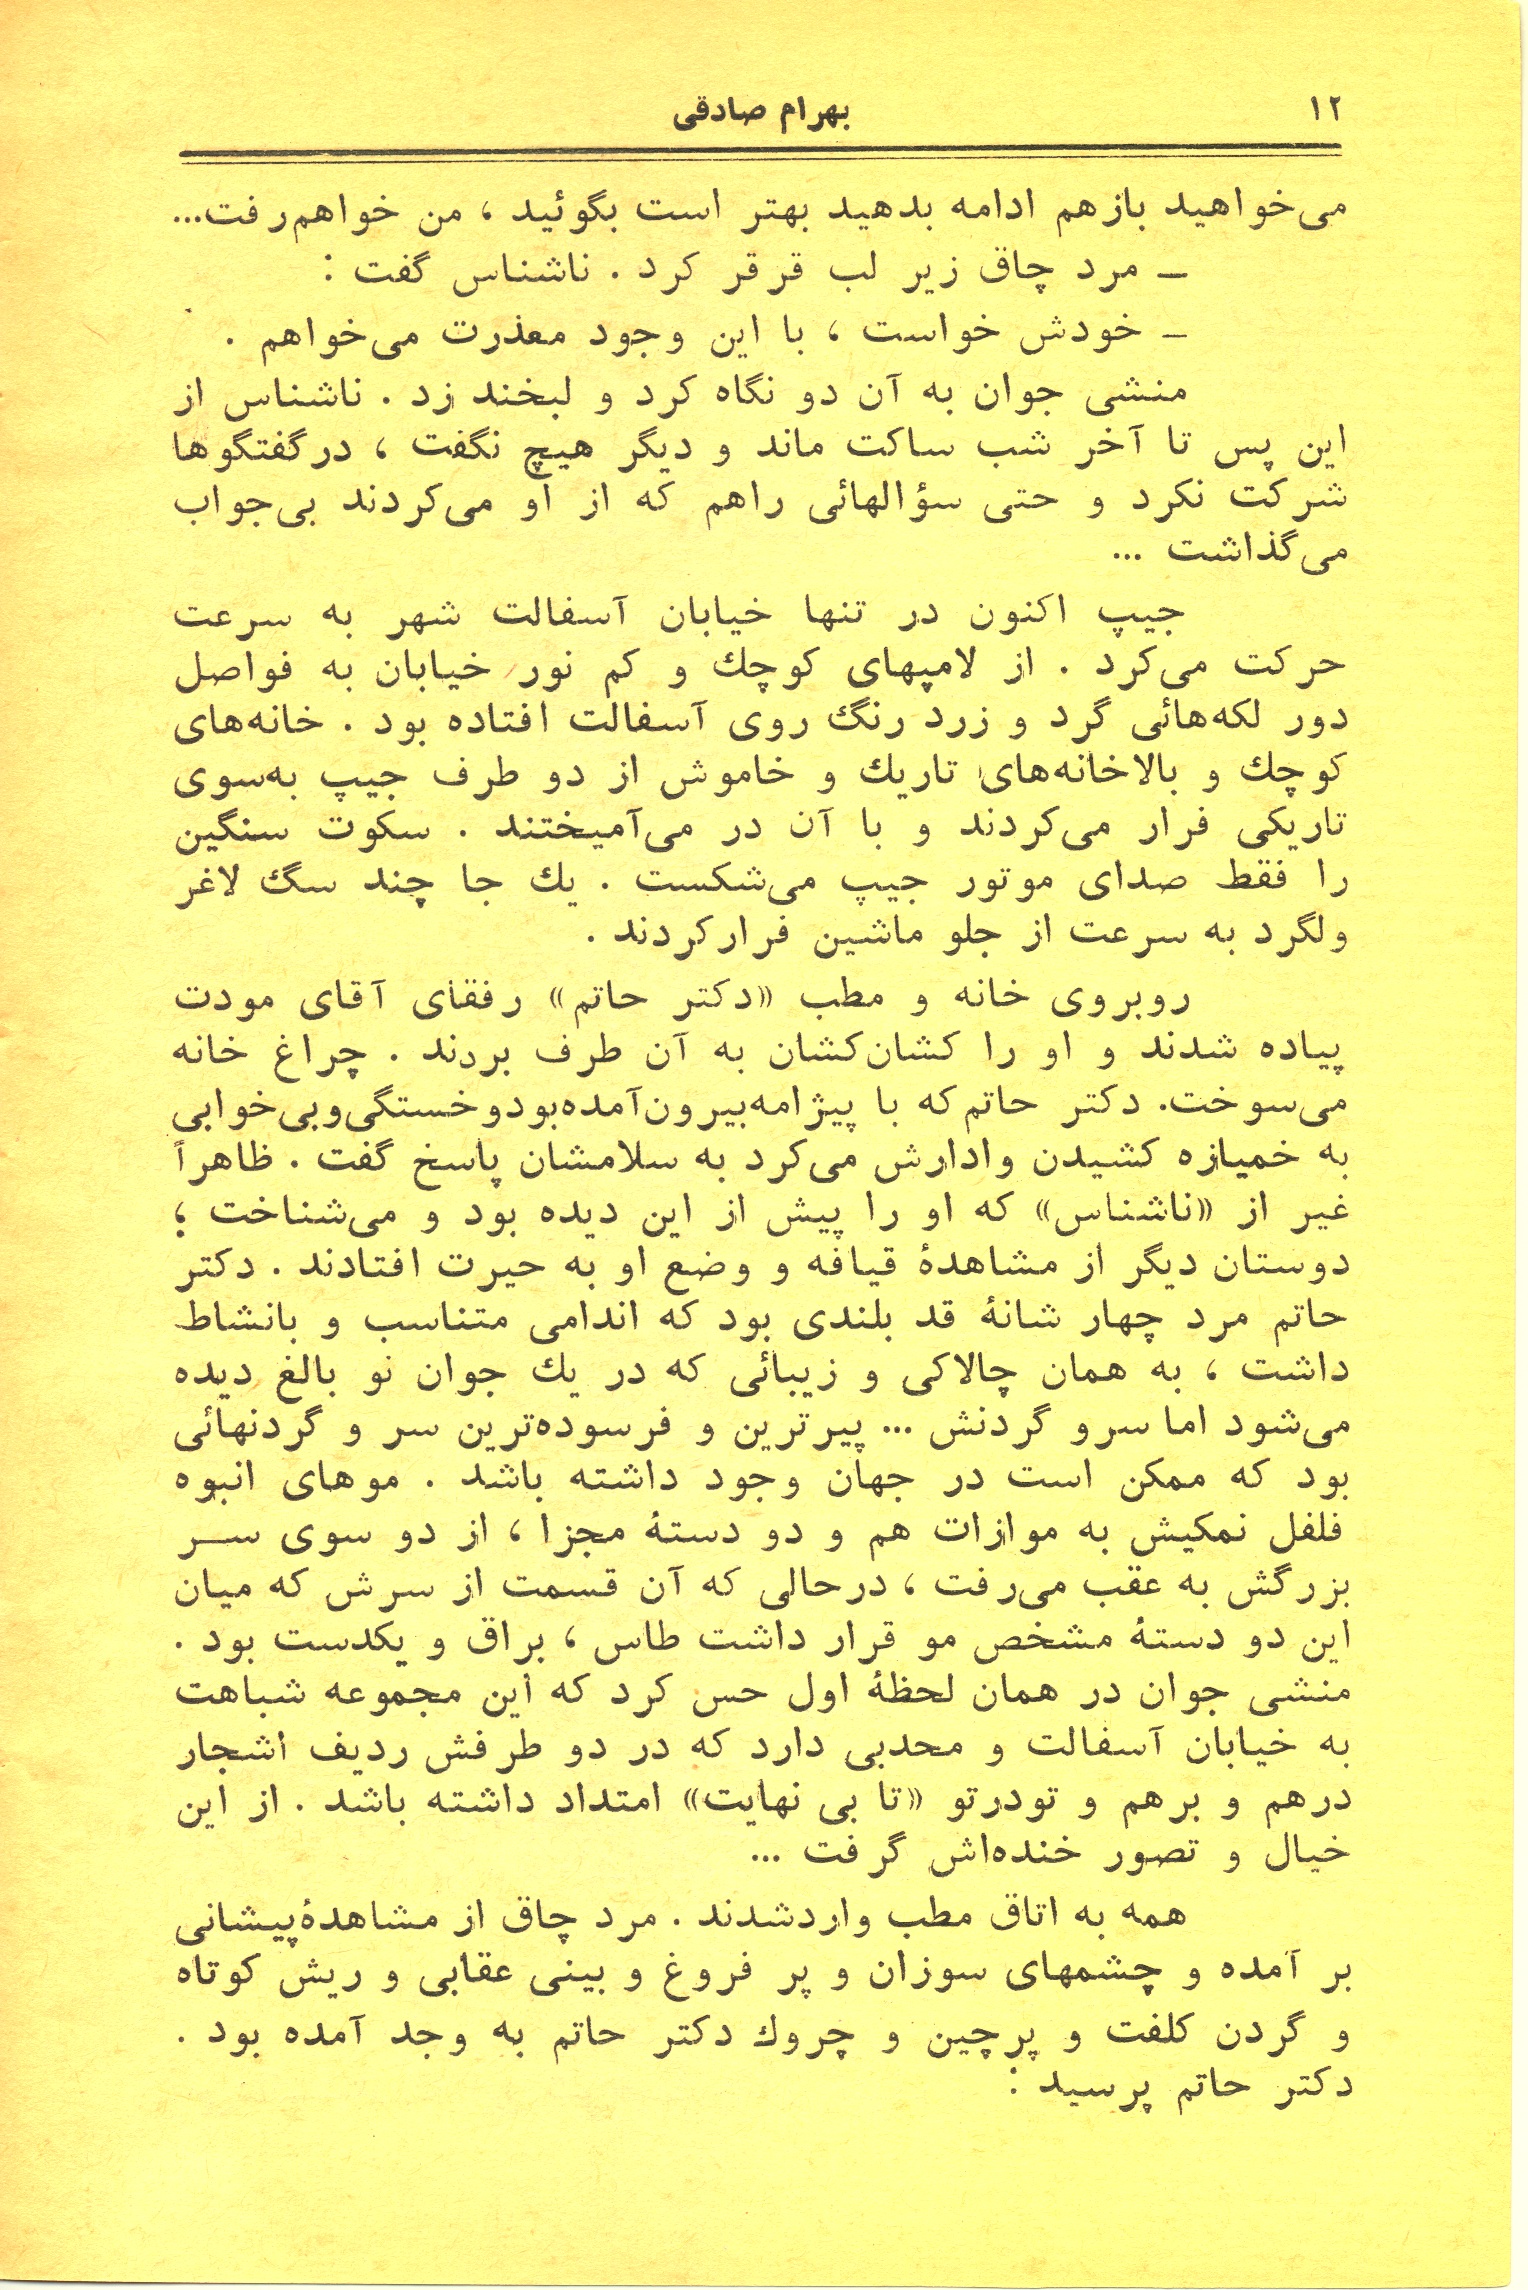 ۱۲
بهرام صادقی
می‌خواهید بازهم ادامه بدهید بهتر است بگوئید ، من خواهم‌رفت...
ـ مرد چاق زیر لب قرقر کرد . ناشناس گفت :
ـ خودش خواست ، با این وجود معذرت می‌خواهم .
منشی جوان به آن دو نگاه کرد و لبخند زد . ناشناس از
این پس تا آخر شب ساکت ماند و دیگر هیچ نگفت ، درگفتگوها
شرکت نکرد و حتی سؤالهائی راهم که از او می‌کردند بی‌جواب
می‌گذاشت ...
جیپ اکنون در تنها خیابان آسفالت شهر به سرعت
حرکت می‌کرد . از لامپهای کوچك و کم نور خیابان به فواصل
دور لکه‌هائی گرد و زرد رنگ روی آسفالت افتاده بود . خانه‌های
کوچك و بالاخانه‌های تاریك و خاموش از دو طرف جیپ به‌سوی
تاریکی فرار می‌کردند و با آن در می‌آمیختند . سکوت سنگین
را فقط صدای موتور جیپ می‌شکست . یك جا چند سگ لاغر
ولگرد به سرعت از جلو ماشین فرارکردند .
روبروی خانه و مطب «دکتر حاتم» رفقای آقای مودت
پیاده شدند و او را کشان‌کشان به آن طرف بردند . چراغ خانه
می‌سوخت. دکتر حاتم‌که با پیژامه‌بیرون‌آمده‌بودوخستگی‌وبی‌خوابی
به خمیازه کشیدن وادارش می‌کرد به سلامشان پاسخ گفت . ظاهراً
غیر از «ناشناس» که او را پیش از این دیده بود و می‌شناخت ؛
دوستان دیگر از مشاهدهٔ قیافه و وضع او به حیرت افتادند . دکتر
حاتم مرد چهار شانهٔ قد بلندی بود که اندامی متناسب و بانشاط
داشت ، به همان چالاکی و زیبائی که در یك جوان نو بالغ دیده
می‌شود اما سرو گردنش ... پیرترین و فرسوده‌ترین سر و گردنهائی
بود که ممکن است در جهان وجود داشته باشد . موهای انبوه
فلفل نمکیش به موازات هم و دو دستهٔ مجزا ، از دو سوی ســر
بزرگش به عقب می‌رفت ، درحالی که آن قسمت از سرش که میان
این دو دستهٔ مشخص مو قرار داشت طاس ، براق و یکدست بود .
منشی جوان در همان لحظهٔ اول حس کرد که این مجموعه شباهت
به خیابان آسفالت و محدبی دارد که در دو طرفش ردیف اشجار
درهم و برهم و تودرتو «تا بی نهایت» امتداد داشته باشد . از این
خیال و تصور خنده‌اش گرفت ...
همه به اتاق مطب واردشدند . مرد چاق از مشاهدهٔ‌پیشانی
بر آمده و چشمهای سوزان و پر فروغ و بینی عقابی و ریش کوتاه
و گردن کلفت و پرچین و چروك دکتر حاتم به وجد آمده بود .
دکتر حاتم پرسید :